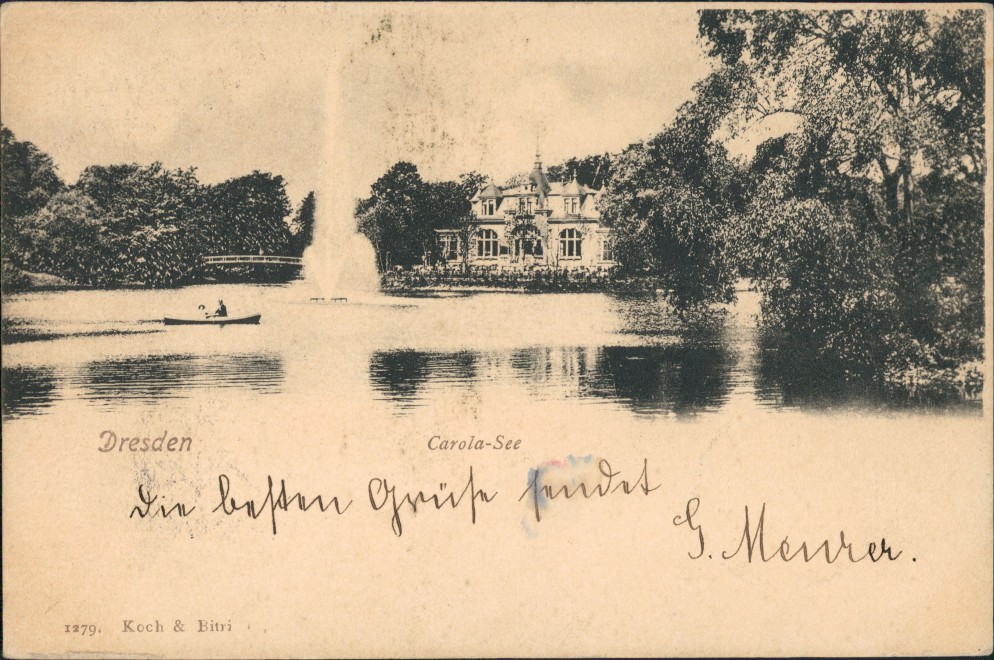 Dresden
Carola-See
Die besten Grüße sendet
G. Meurer.
1279. Koch & Bitri